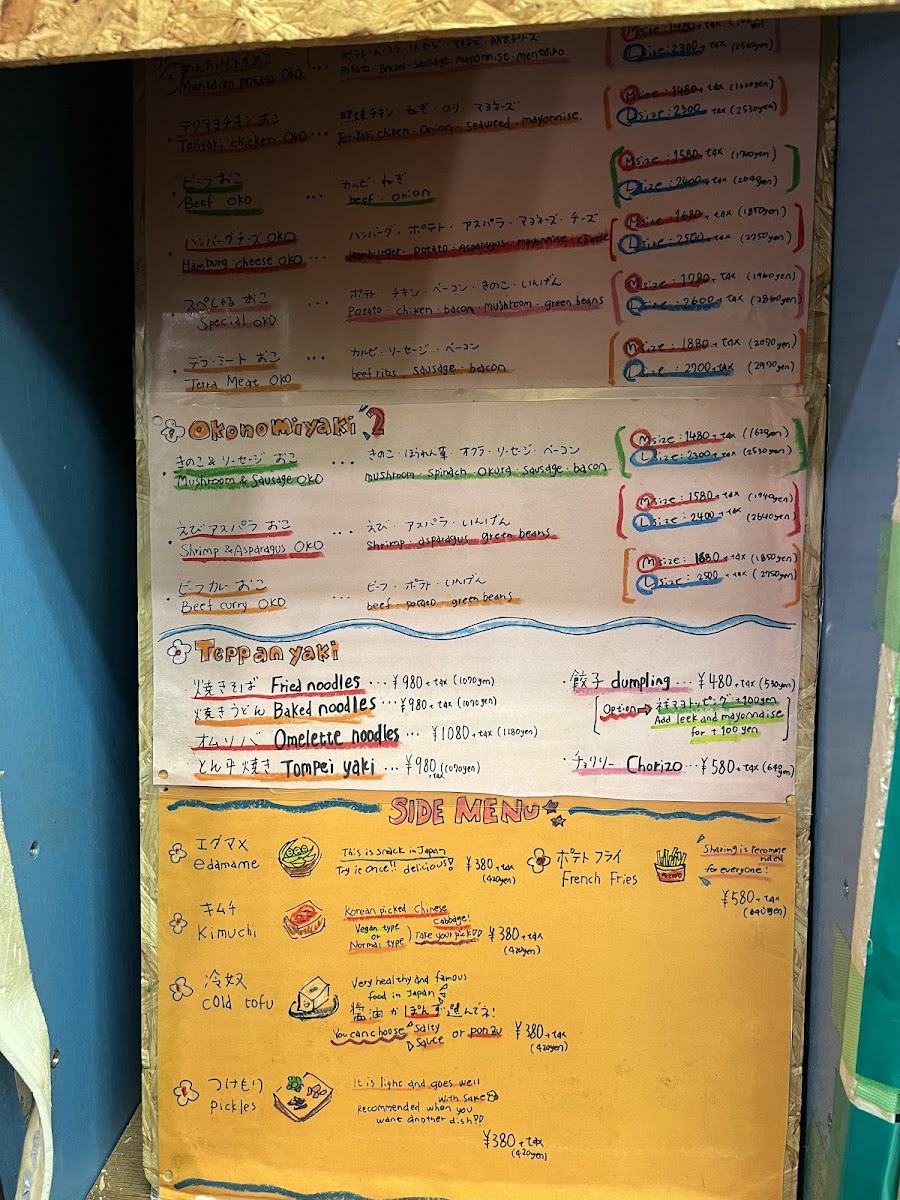 めんたいじゃがおこ ... ポテト・ベーコン・ソーセージ・マヨネーズ・明太ソース Msize:1480+tax
Mentaiko potato OKO potato・Bacon・sausage・mayonnise・mentaiko Lsize:2300+tax (2530yen)
・テリマヨチキン おこ 照焼チキン・ねぎ・のり・マヨネーズ Msize:1480+tax (1620yen)
Teriyaki chicken OKO... Teriyaki chiken・onion・seaweed・mayonnise. Lsize:2300+tax (2530yen)
・ビーフおこ ... カルビ・ねぎ Msize:1580+tax (1740yen)
Beef OKO beef・onion Lsize:2400+tax (2640yen)
・ハンバーグチーズ OKO ハンバーグ・ポテト・アスパラ・マヨネーズ・チーズ Msize:1680+tax (1850yen)
Hamburg cheese OKO... Hamburger・potato・Asparagus・mayonnise・cheese Lsize:2500+tax (2750yen)
・スペしゃる おこ ... ポテト・チキン・ベーコン・きのこ・いんげん Msize:1780+tax (1960yen)
Special OKO Potato・chiken・bacon・mushroom・green beans Lsize:2600+tax (2860yen)
・テラ・ミート おこ ... カルビ・ソーセージ・ベーコン Msize:1880+tax (2070yen)
Terra Meat OKO beef ribs・sausage・bacon Lsize:2700+tax (2970yen)
Okonomiyaki 2
・きのこ&ソーセージ おこ ... きのこ・ほうれん草・オクラ・ソーセージ・ベーコン Msize:1480+tax (1620yen)
Mushroom & Sausage OKO mushroom・spinach・okura・sausage・bacon Lsize:2300+tax (2530yen)
・えびアスパラ おこ ... えび・アスパラ・いんげん Msize:1580+tax (1740yen)
Shrimp & Asparagus OKO Shrimp・asparagus・green beans Lsize:2400+tax (2640yen)
・ビーフカレー おこ ... ビーフ・ポテト・いんげん Msize:1680+tax (1850yen)
Beef curry OKO beef・potato・green beans Lsize:2500+tax (2750yen)
Teppanyaki
焼きそば Fried noodles...¥980+tax (1070yen)
焼きうどん Baked noodles...¥980+tax (1070yen)
オムソバ Omelette noodles...¥1080+tax (1180yen)
とん平焼き Tompei yaki...¥980+tax (1070yen)
・餃子 dumpling...¥480+tax (530yen)
Option→ネギマヨトッピング+100yen
Add leek and mayonnaise
for +100yen
・チョリソー Chorizo...¥580+tax (640yen)
SIDE MENU
エダマメ
edamame
This is snack in Japan
Try it once!! delicious! ¥380+tax
(420yen)
ポテトフライ
French Fries
Sharing is recomme
nded
for everyone!
¥580+tax
(640yen)
キムチ
Kimuchi
Korean picked Chinese
Cabbage!
Vegan type
or
Normal type
Take your pick!! ¥380+tax
(420yen)
冷奴
cold tofu
Very healthy and famous
food in Japan
醤油かぽんず選んでネ!
You can choose Salty
Sauce or ponzu ¥380+tax
(420yen)
つけもり
pickles
It is light and goes well
with sake
Recommended when you
want another dish!!
¥380+tax
(420yen)